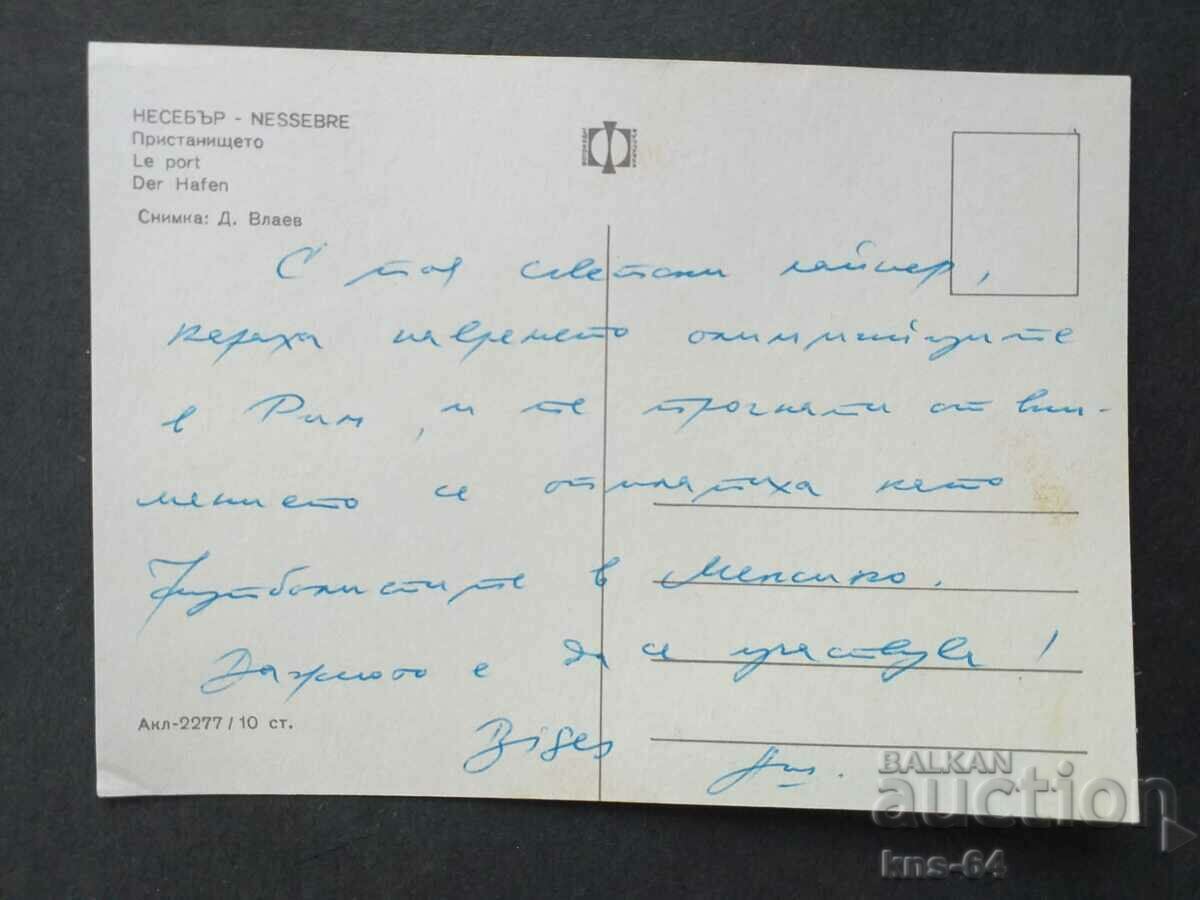 НЕСЕБЪР - NESSEBRE
Пристанището
Le port
Der Hafen
Снимка: Д. Влаев
С тоя съветски лайнер,
караха навремето олимпийците
в Рим, и те трогнати от вни-
манието се отплатиха като
футболистите в Мексико.
Важното е да се участвува!
Акл-2277/10 ст.
BALKAN
auction
kns-64